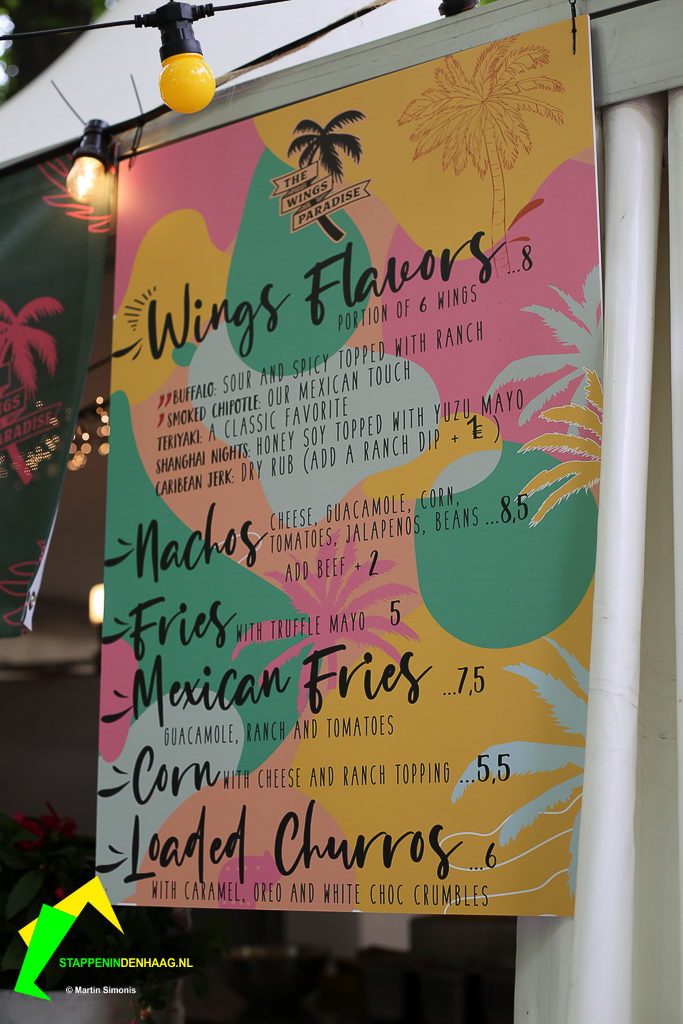 THE
WINGS
PARADISE
Wings Flavors ...8
PORTION OF 6 WINGS
BUFFALO: SOUR AND SPICY TOPPED WITH RANCH
SMOKED CHIPOTLE: OUR MEXICAN TOUCH
TERIYAKI: A CLASSIC FAVORITE
SHANGHAI NIGHTS: HONEY SOY TOPPED WITH YUZU MAYO
CARIBEAN JERK: DRY RUB (ADD A RANCH DIP + 1€)
Nachos CHEESE, GUACAMOLE, CORN,
TOMATOES, JALAPENOS, BEANS ...8,5
ADD BEEF + 2
Fries WITH TRUFFLE MAYO 5
Mexican Fries ...7,5
GUACAMOLE, RANCH AND TOMATOES
Corn WITH CHEESE AND RANCH TOPPING ...5,5
Loaded Churros ...6
WITH CARAMEL, OREO AND WHITE CHOC CRUMBLES
PARADISE
STAPPENINDENHAAG.NL
© Martin Simonis